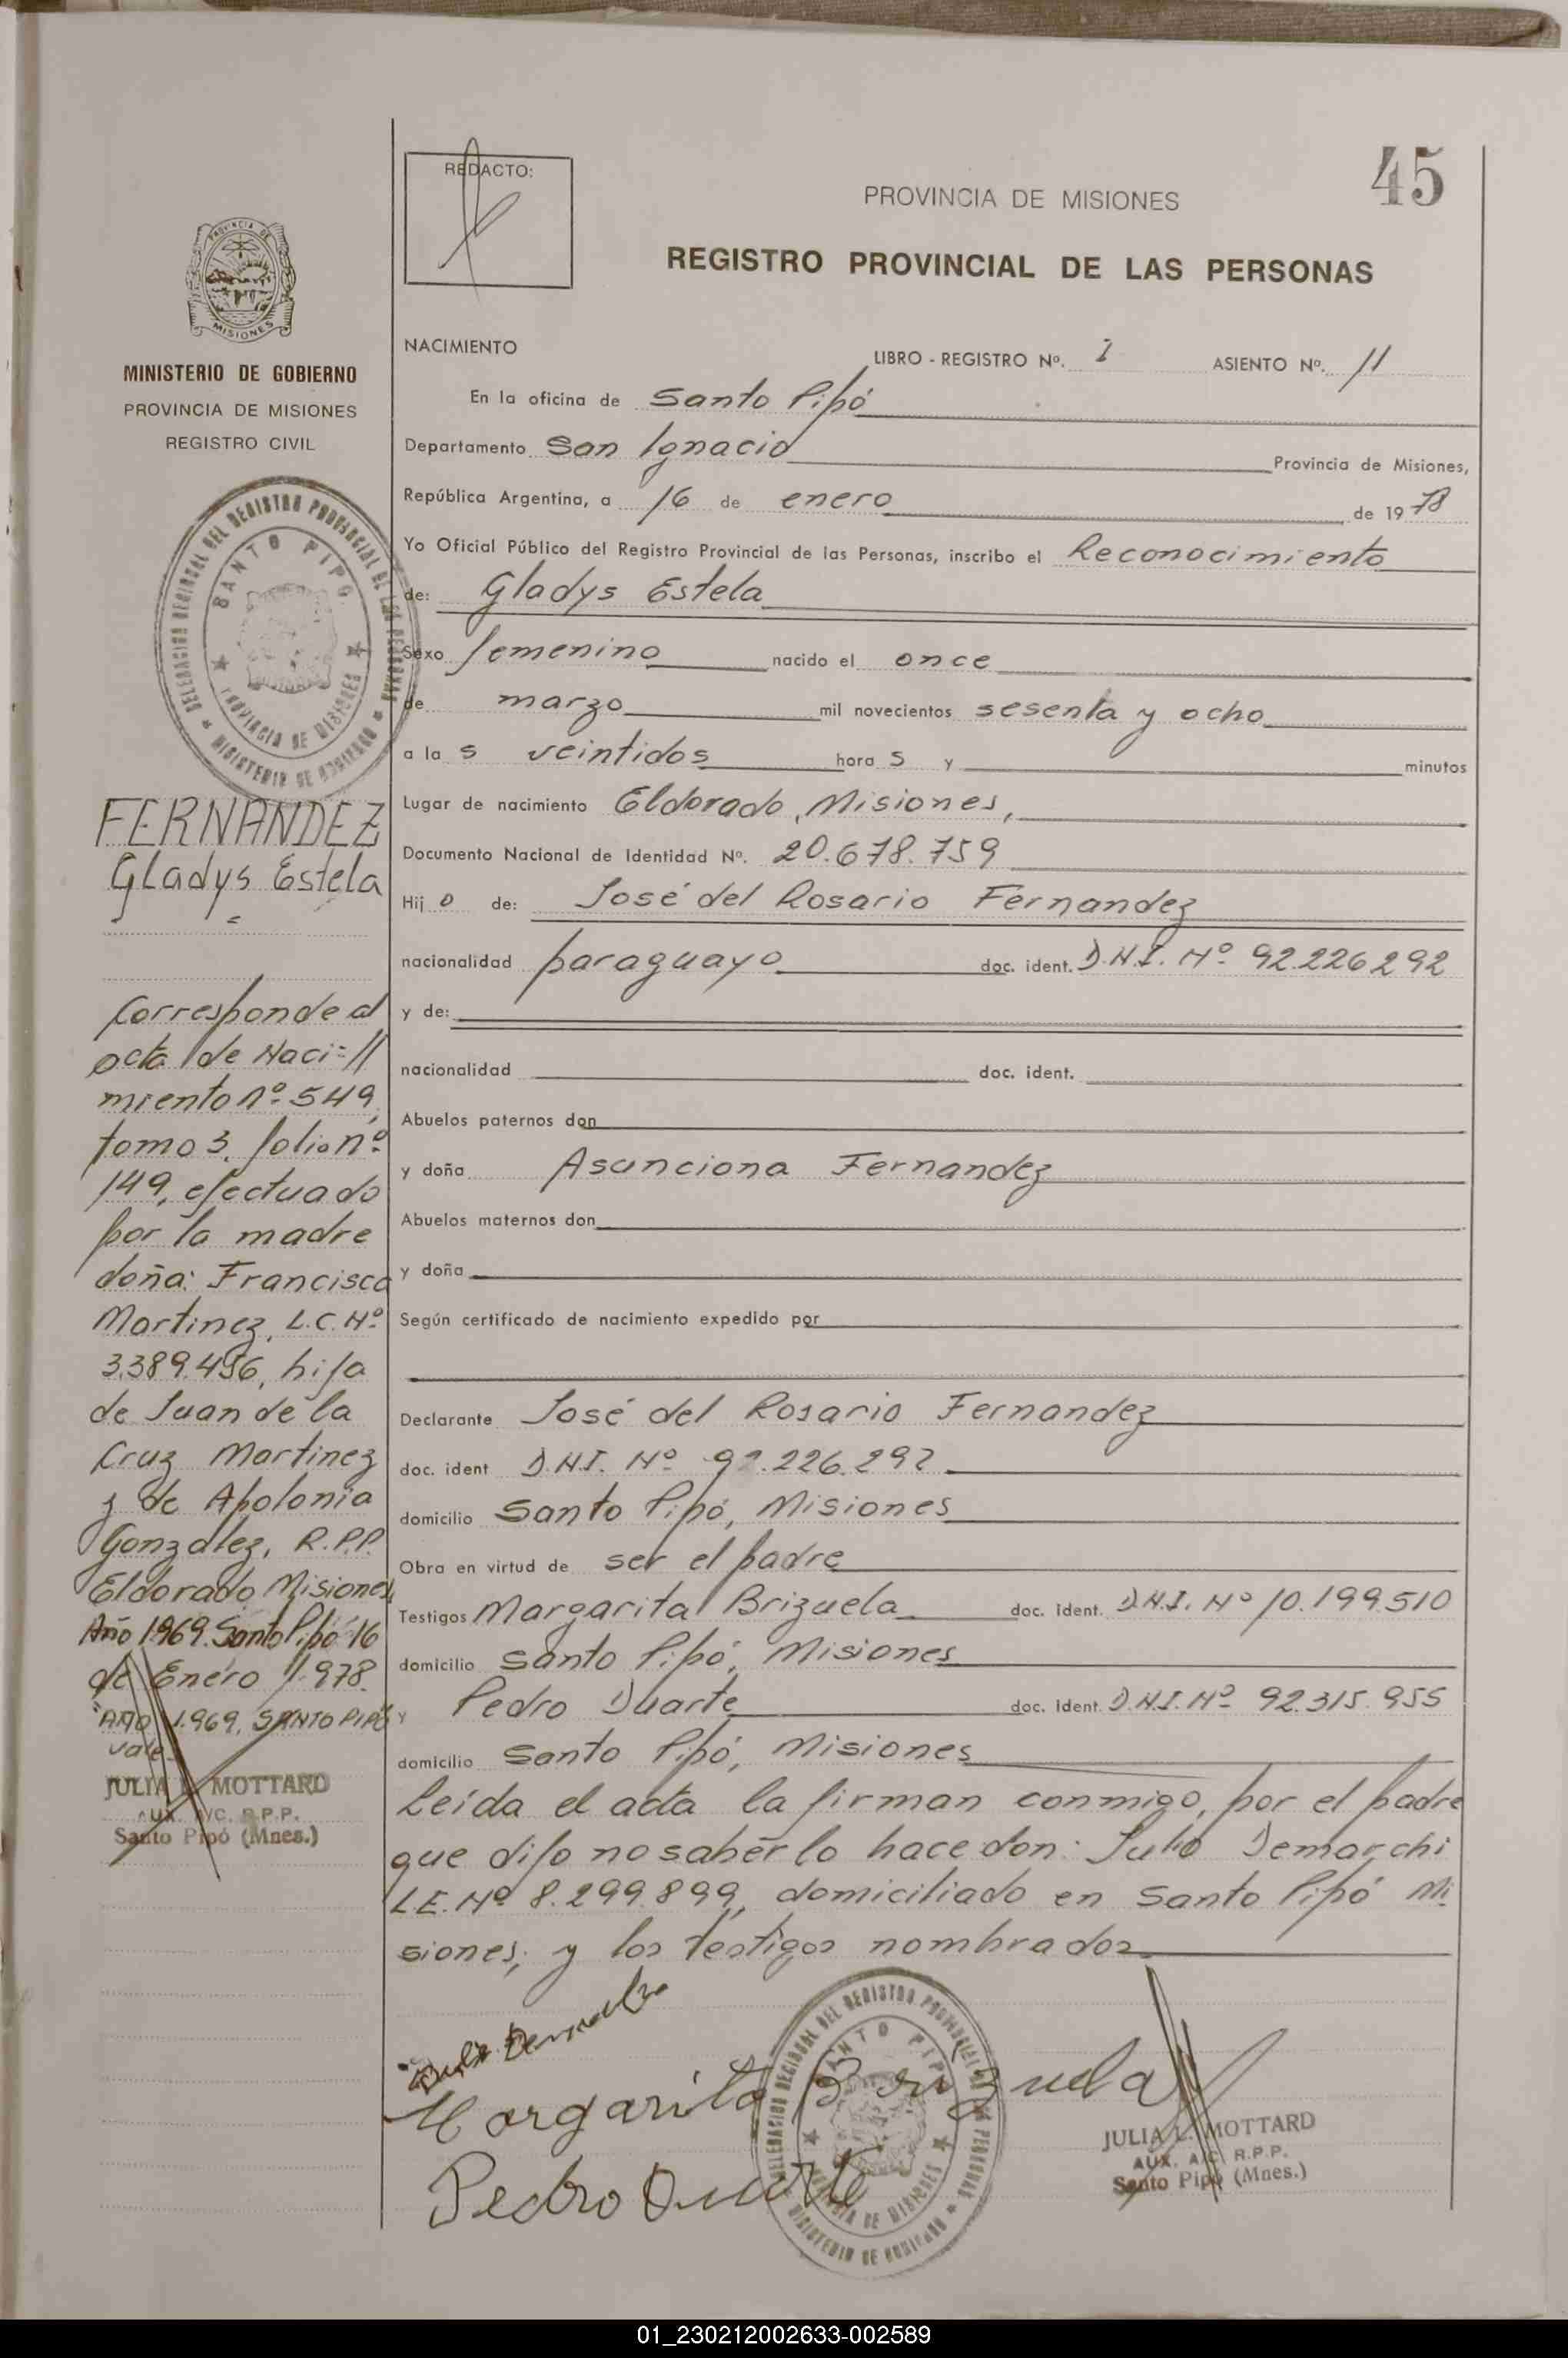 REDACTO:
45
PROVINCIA DE MISIONES
REGISTRO PROVINCIAL DE LAS PERSONAS
PROVINCIA DE
MISIONES
MINISTERIO DE GOBIERNO
PROVINCIA DE MISIONES
REGISTRO CIVIL
DELEGACION REGIONAL DEL REGISTRO PROVINCIAL DE LAS PERSONAS
SANTO PIPO
PROVINCIA DE MISIONES
MINISTERIO DE GOBIERNO
FERNANDEZ
Gladys Estela
Corresponde al
acta de Naci=//
miento nº 549,
tomo 3, folio nº
149, efectuado
por la madre
doña: Francisca
Martinez, L.C. Nº
3.389.456, hija
de Juan de la
Cruz Martinez
y de Apolonia
Gonzalez, R.P.P.
Eldorado Misiones,
Año 1969. Santo Pipó 16
de Enero 1.978.
"AÑO 1.969, SANTO PIPÓ
vale.
JULIA L. MOTTARD
AUX. A/C. R.P.P.
Santo Pipó (Mnes.)
NACIMIENTO
LIBRO - REGISTRO Nº. I ASIENTO Nº. 11
En la oficina de Santo Pipó
Departamento San Ignacio Provincia de Misiones,
República Argentina, a 16 de enero de 19 78
Yo Oficial Público del Registro Provincial de las Personas, inscribo el Reconocimiento
de: Gladys Estela
Sexo femenino nacido el once
de marzo mil novecientos sesenta y ocho
a la s veintidos hora s y minutos
Lugar de nacimiento Eldorado, Misiones,
Documento Nacional de Identidad Nº. 20.678.759
Hij o de: José del Rosario Fernandez
nacionalidad paraguayo doc. ident. D.N.I. Nº 92.226292
y de:
nacionalidad doc. ident.
Abuelos paternos don
y doña Asunciona Fernandez
Abuelos maternos don
y doña
Según certificado de nacimiento expedido por
Declarante José del Rosario Fernandez
doc. ident D.N.I. Nº 92.226.292
domicilio Santo Pipó, Misiones
Obra en virtud de ser el padre
Testigos Margarita Brizuela doc. ident. D.N.I. Nº 10.199.510
domicilio Santo Pipó, Misiones
y Pedro Duarte doc. ident. D.N.I. Nº 92.315.955
domicilio Santo Pipó, Misiones
Leída el acta la firman conmigo, por el padre
que dijo no saber lo hace don: Julio Demarchi
L.E. Nº 8.299.899, domiciliado en Santo Pipó Mi
siones; y los testigos nombrados
Margarita Brizuela
Pedro Duarte
DELEGACION REGIONAL DEL REGISTRO PROVINCIAL DE LAS PERSONAS
SANTO PIPO
PROVINCIA DE MISIONES
MINISTERIO DE GOBIERNO
JULIA L. MOTTARD
AUX. A/C. R.P.P.
Santo Pipó (Mnes.)
01_230212002633-002589